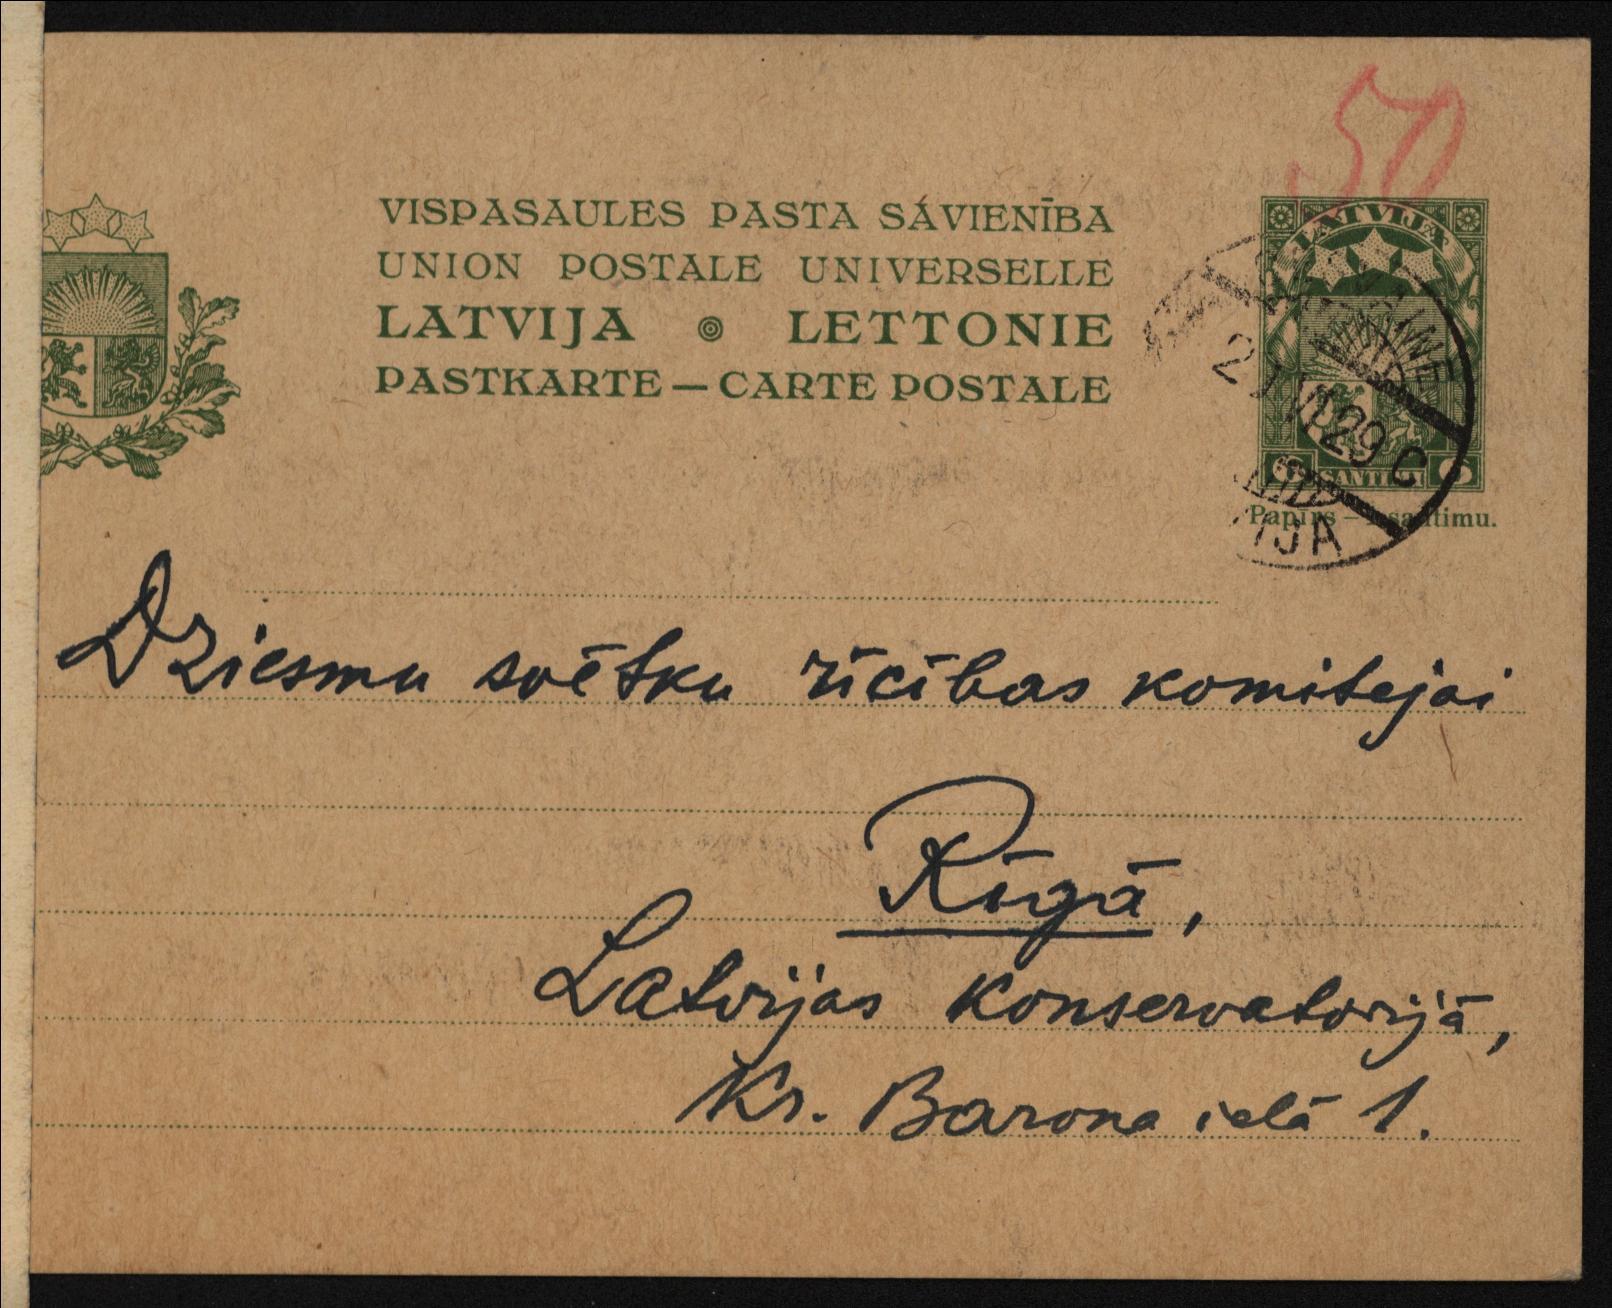 50
VISPASAULES PASTA SÁVIENĪBA
UNION POSTALE UNIVERSELLE
LATVIJA LETTONIE
PASTKARTE — CARTE POSTALE
LATVIJA
21 VI 29 C
6 SANTIMI 6
Papīrs – santimu.
VIJA
Dziesmu svētku rīcības komitejai
Rīgā,
Latvijas Konservatorijā,
Kr. Barona ielā 1.